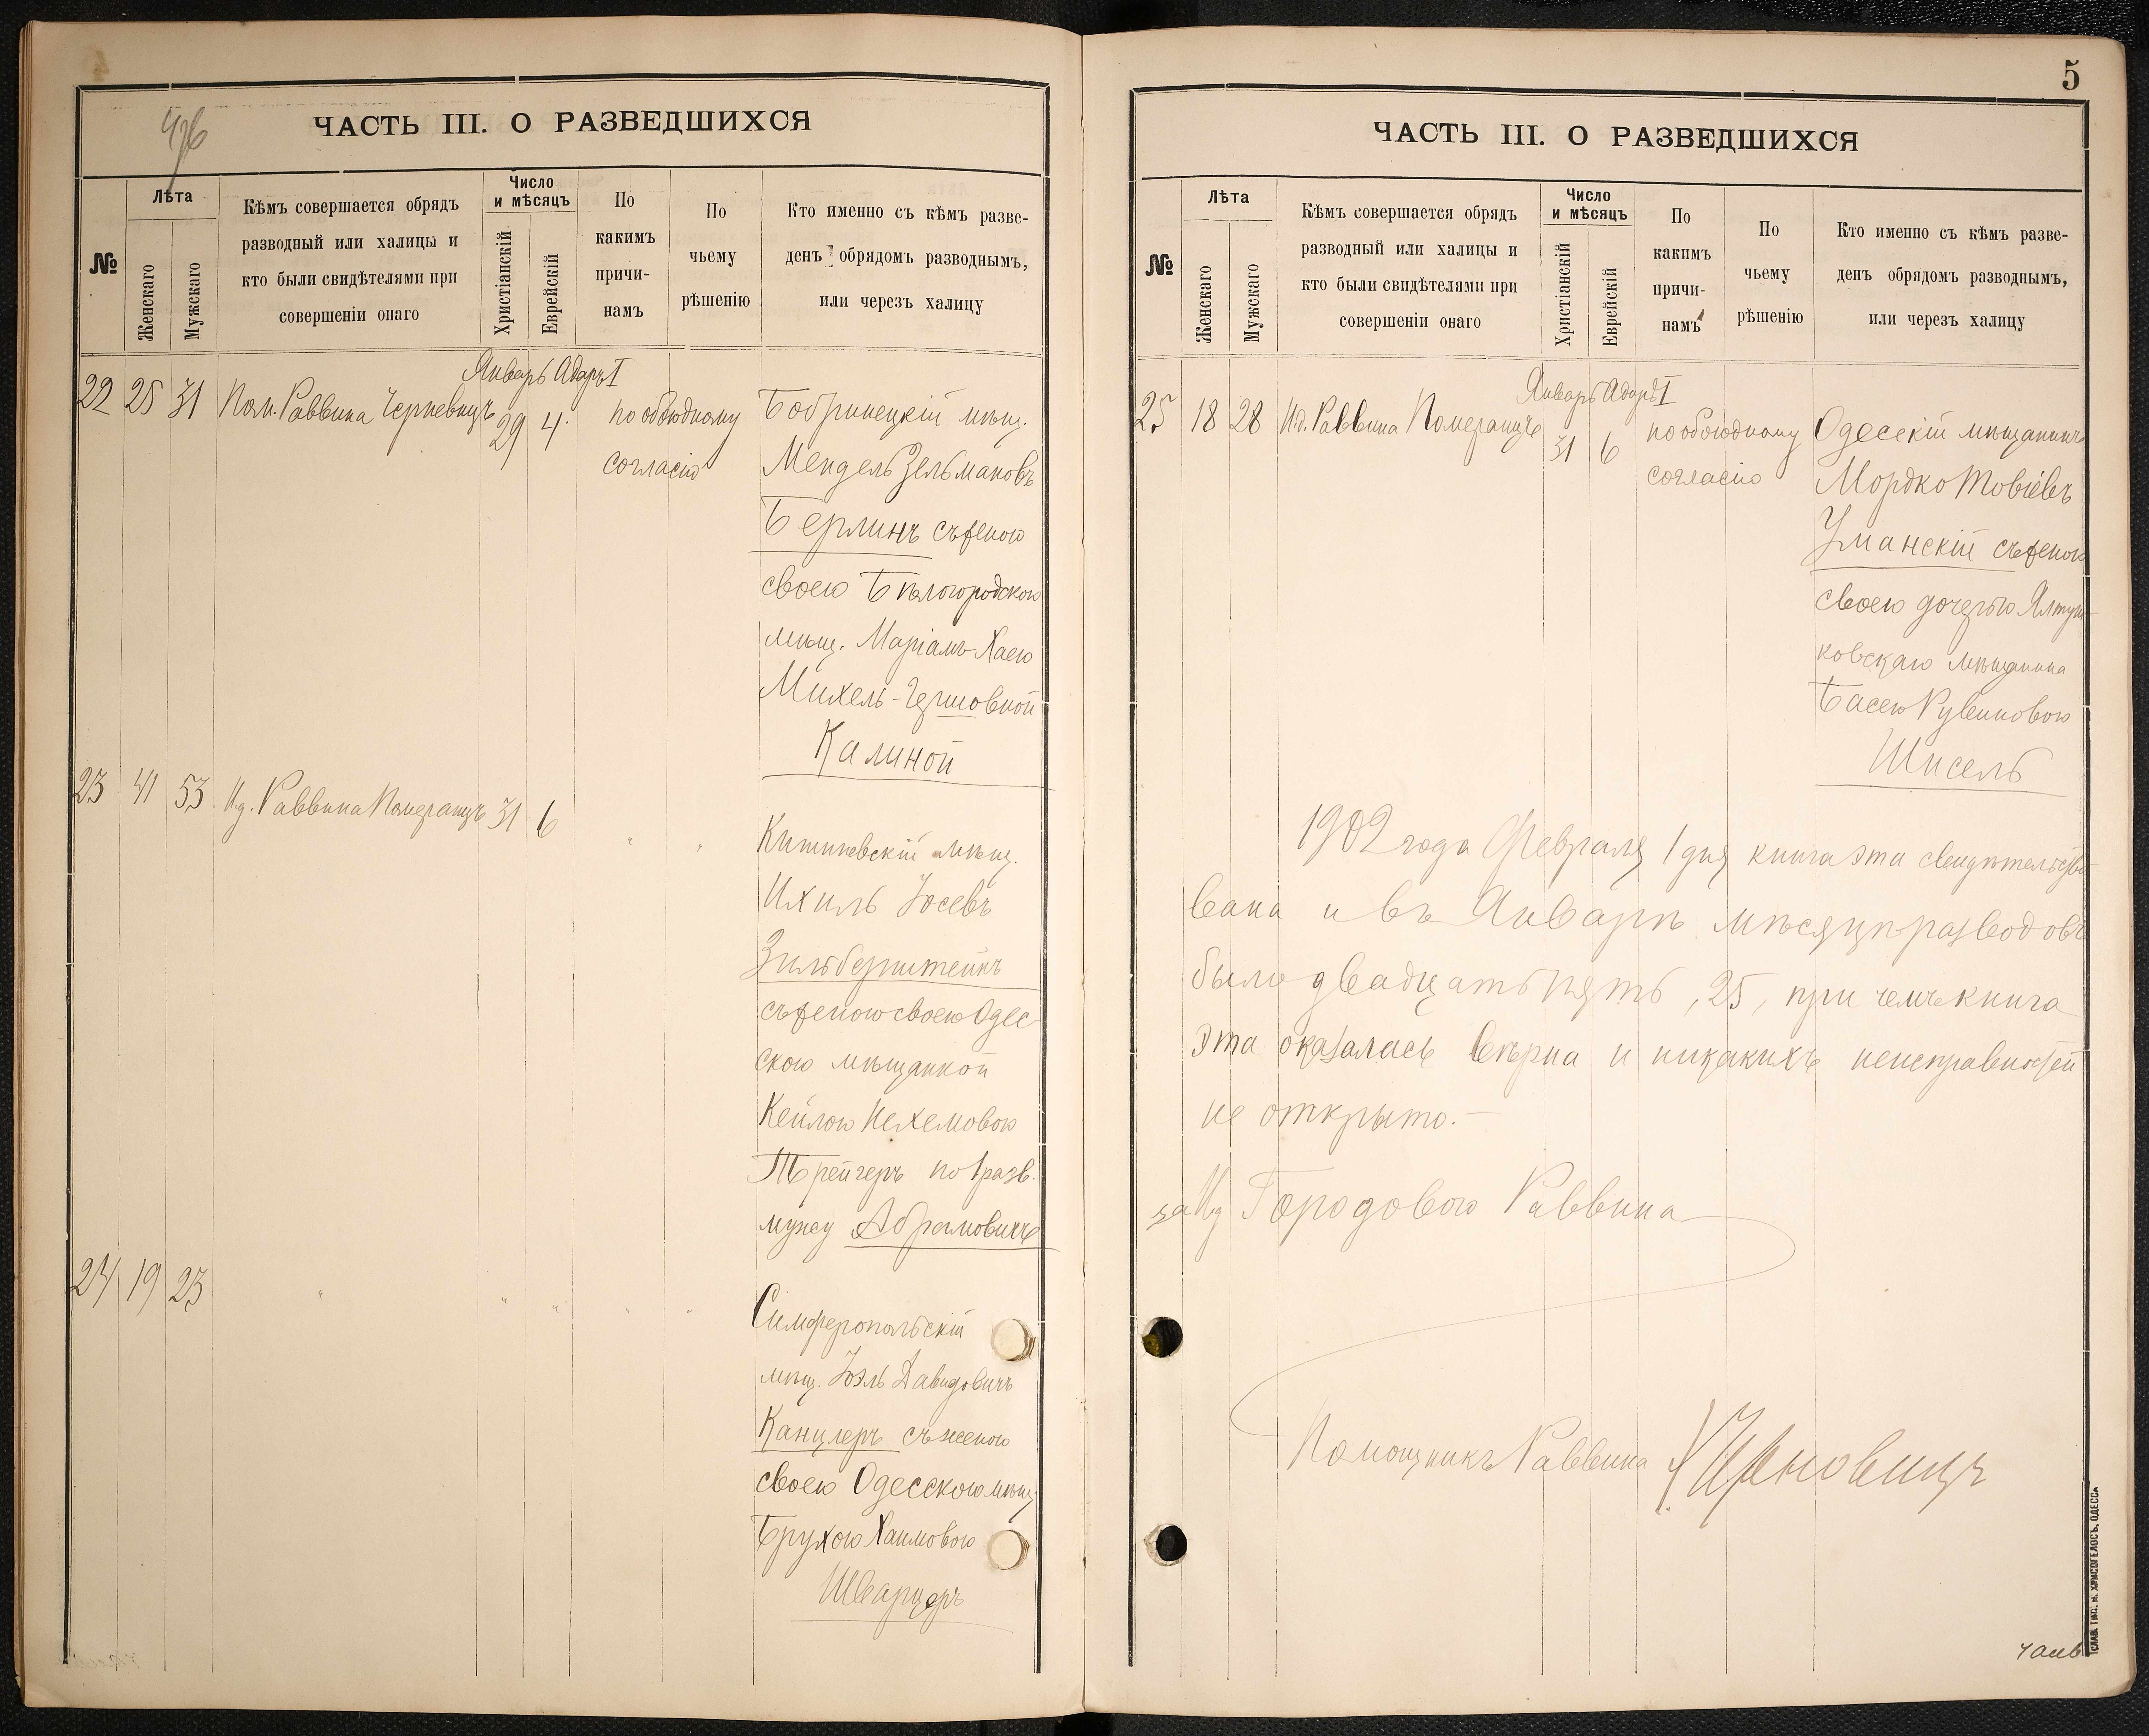 ЧАСТЬ III. О РАЗВЕДШИХСЯ
№
Лѣта
Женскаго
Мужскаго
Кѣмъ совершается обрядъ
разводный или халицы и
кто были свидѣтелями при
совершеніи онаго
Число
и мѣсяцъ
Христіанскій
Еврейскій
По
какимъ
причи-
намъ
По
чьему
рѣшенію
Кто именно съ кѣмъ разве-
денъ обрядомъ разводнымъ,
или черезъ халицу
Январь Адаръ I
22 25 31 Пом. Раввина Черновицъ 29 4 по обоюдному
согласію
Бобринецкій мѣщ.
Мендель Зельмановъ
Берлинъ съ женою
своею Бѣлогородскою
мѣщ. Маріамъ-Хаею
Михель-Гершовной
Калиной
23 41 53 И.д. Раввина Померанцъ 31 6 " "
Кишиневскій мѣщ.
Ихиль Іосевъ
Зильберштейнъ
съ женою своею Одес-
скою мѣщанкой
Кейлою Нехемовою
Трейгеръ по 1 разв.
мужу Абрамовичъ
24 19 23 " " " " "
Симферопольскій
мѣщ. Іоэль Давидовичъ
Канцлеръ съ женою
своею Одесскою мѣщ.
Брухою Хаимовою
Шварцеръ
5
ЧАСТЬ III. О РАЗВЕДШИХСЯ
№
Лѣта
Женскаго
Мужскаго
Кѣмъ совершается обрядъ
разводный или халицы и
кто были свидѣтелями при
совершеніи онаго
Число
и мѣсяцъ
Христіанскій
Еврейскій
По
какимъ
причи-
намъ
По
чьему
рѣшенію
Кто именно съ кѣмъ разве-
денъ обрядомъ разводнымъ,
или черезъ халицу
Январь Адаръ I
25 18 28 И.д. Раввина Померанцъ 31 6 по обоюдному
согласію
Одесскій мѣщанинъ
Мордко Товіевъ
Уманскій съ женою
своею дочерью Ялтуш-
ковскаго мѣщанина
Басею Рувиновою
Шисель
1902 года Февраля 1 дня книга эта свидѣтельство-
вана и въ Январѣ мѣсяцѣ разводовъ
было двадцать пять, 25, при чемъ книга
эта оказалась вѣрна и никакихъ неисправностей
не открыто.—
за И.д. Городового Раввина
Помощникъ Раввина Х. Черновицъ
СЛАВ. ТИП. Н. ХРИСОГЕЛОСЪ, ОДЕССА